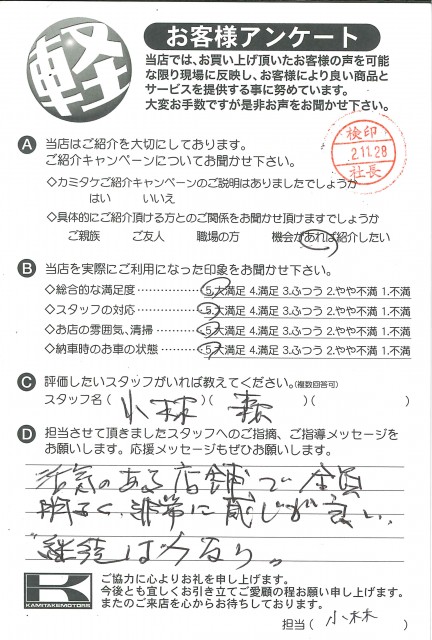 軽
お客様アンケート
当店では、お買い上げ頂いたお客様の声を可能
な限り現場に反映し、お客様により良い商品と
サービスを提供する事に努めています。
大変お手数ですが是非お声をお聞かせ下さい。
A 当店はご紹介を大切にしております。
ご紹介キャンペーンについてお聞かせ下さい。
検印
2.11.28
社長
◇カミタケご紹介キャンペーンのご説明はありましたでしょうか
はい いいえ
◇具体的にご紹介頂ける方とのご関係をお聞かせ頂けますでしょうか
ご親族 ご友人 職場の方 機会があれば紹介したい
B 当店を実際にご利用になった印象をお聞かせ下さい。
◇総合的な満足度 5.大満足 4.満足 3.ふつう 2.やや不満 1.不満
◇スタッフの対応 5.大満足 4.満足 3.ふつう 2.やや不満 1.不満
◇お店の雰囲気、清掃 5.大満足 4.満足 3.ふつう 2.やや不満 1.不満
◇納車時のお車の状態 5.大満足 4.満足 3.ふつう 2.やや不満 1.不満
C 評価したいスタッフがいれば教えてください。(複数回答可)
スタッフ名( 小林 )( 森 )( )
D 担当させて頂きましたスタッフへのご指摘、ご指導メッセージを
お願いします。応援メッセージもぜひお願いします。
活気のある店舗で全員
明るく、非常に感じが良い。
"継続は力なり。
K
KAMITAKEMOTORS
ご協力に心よりお礼を申し上げます。
今後とも宜しくお引き立てご愛顧の程お願い申し上げます。
またのご来店を心からお待ちしております。
担当( 小林 )